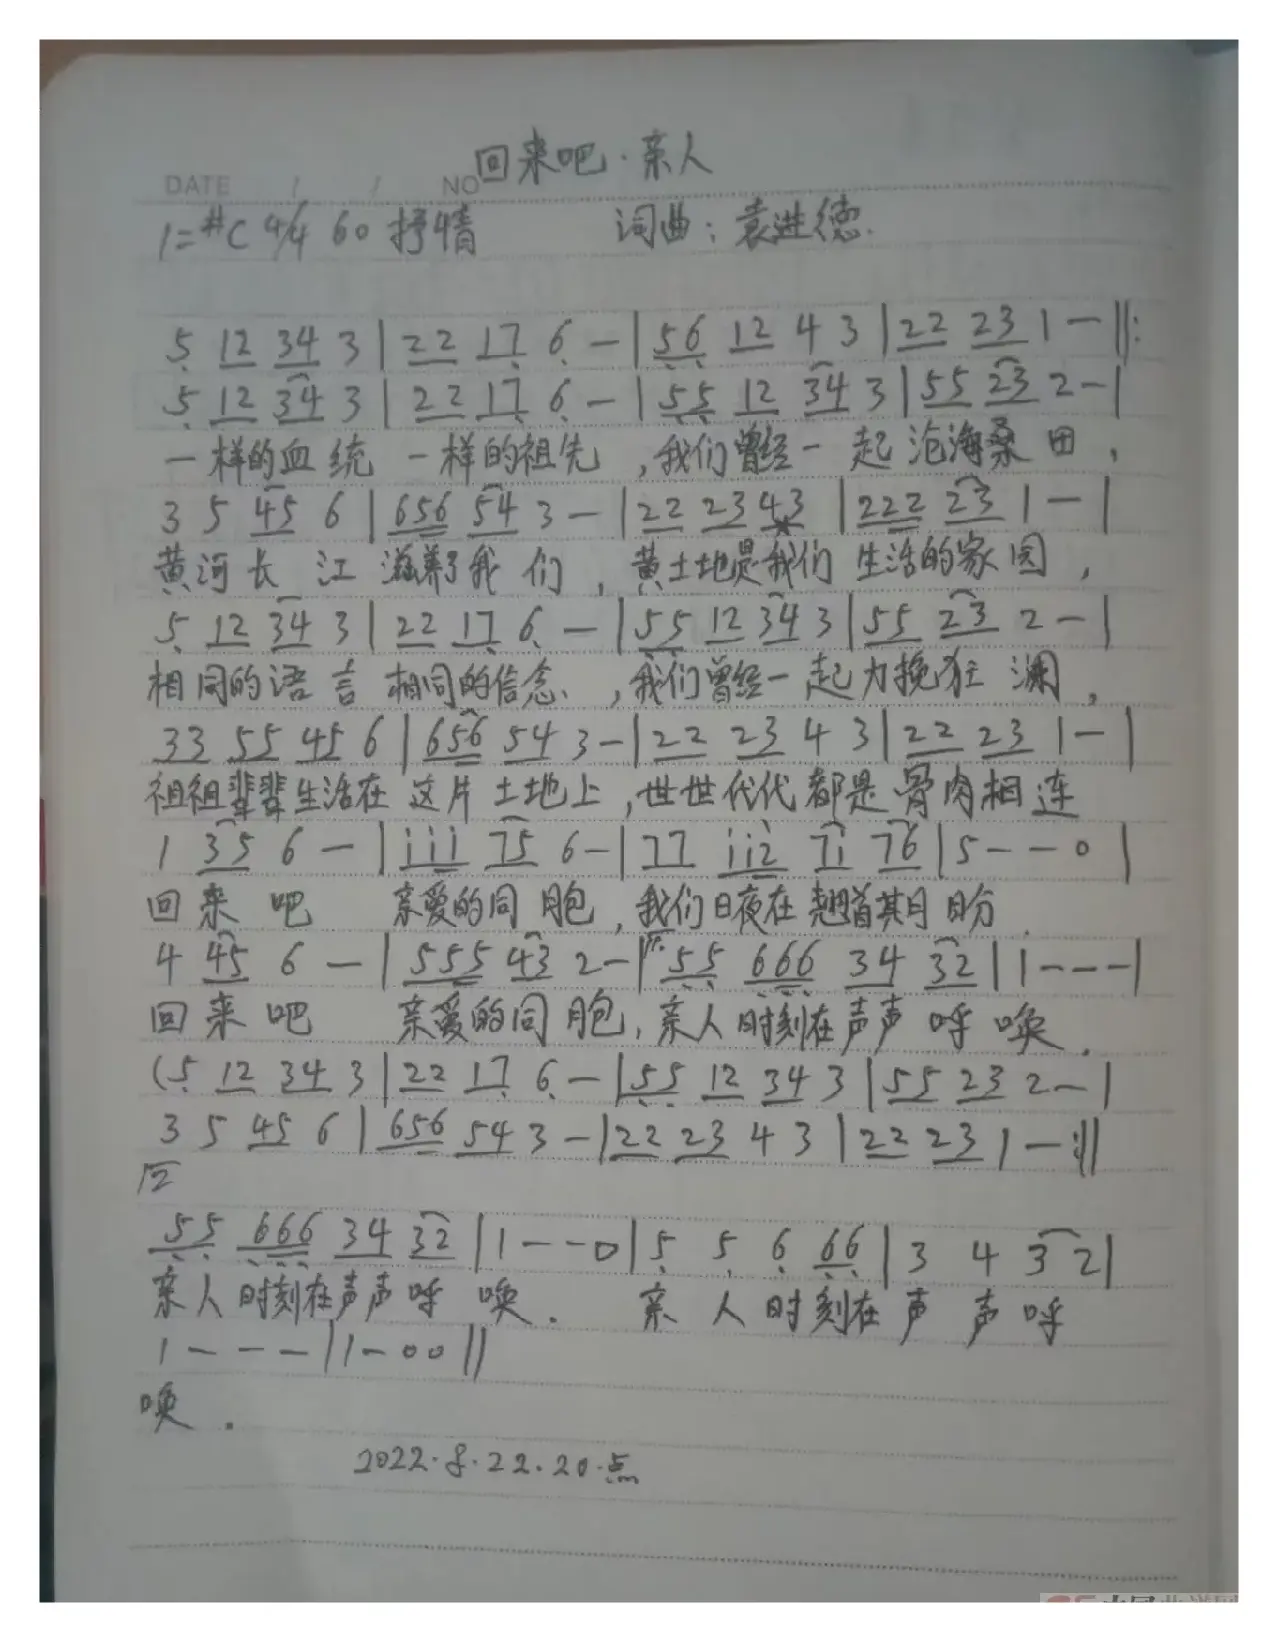 回来吧·亲人
DATE / / NO
1=#C 4/4 60 抒情 词曲：袁进德.
5 12 34 3 | 22 17 6 - | 56 12 4 3 | 22 23 1 - ‖:
5 12 34 3 | 22 17 6 - | 55 12 34 3 | 55 23 2 - |
一样的血统 一样的祖先，我们曾经一起沧海桑田，
3 5 45 6 | 656 54 3 - | 22 23 43 | 222 23 1 - |
黄河长江滋养了我们，黄土地是我们生活的家园，
5 12 34 3 | 22 17 6 - | 55 12 34 3 | 55 23 2 - |
相同的语言 相同的信念，我们曾经一起力挽狂澜，
33 55 45 6 | 656 54 3 - | 22 23 4 3 | 22 23 1 - |
祖祖辈辈生活在这片土地上，世世代代都是骨肉相连
1 35 6 - | iii 75 6 - | 77 ii2 7i 76 | 5 - - 0 |
回来吧 亲爱的同胞，我们日夜在翘首期盼.
4 45 6 - | 555 43 2 - | 55 666 34 32 | 1 - - - |
回来吧 亲爱的同胞，亲人时刻在声声呼唤.
(5 12 34 3 | 22 17 6 - | 55 12 34 3 | 55 23 2 - |
3 5 45 6 | 656 54 3 - | 22 23 4 3 | 22 23 1 - :‖
二
55 666 34 32 | 1 - - 0 | 5 5 6 66 | 3 4 32 |
亲人时刻在声声呼唤. 亲人时刻在声声呼
1 - - - | 1 - 0 0 ‖
唤.
2022.8.22.20.点